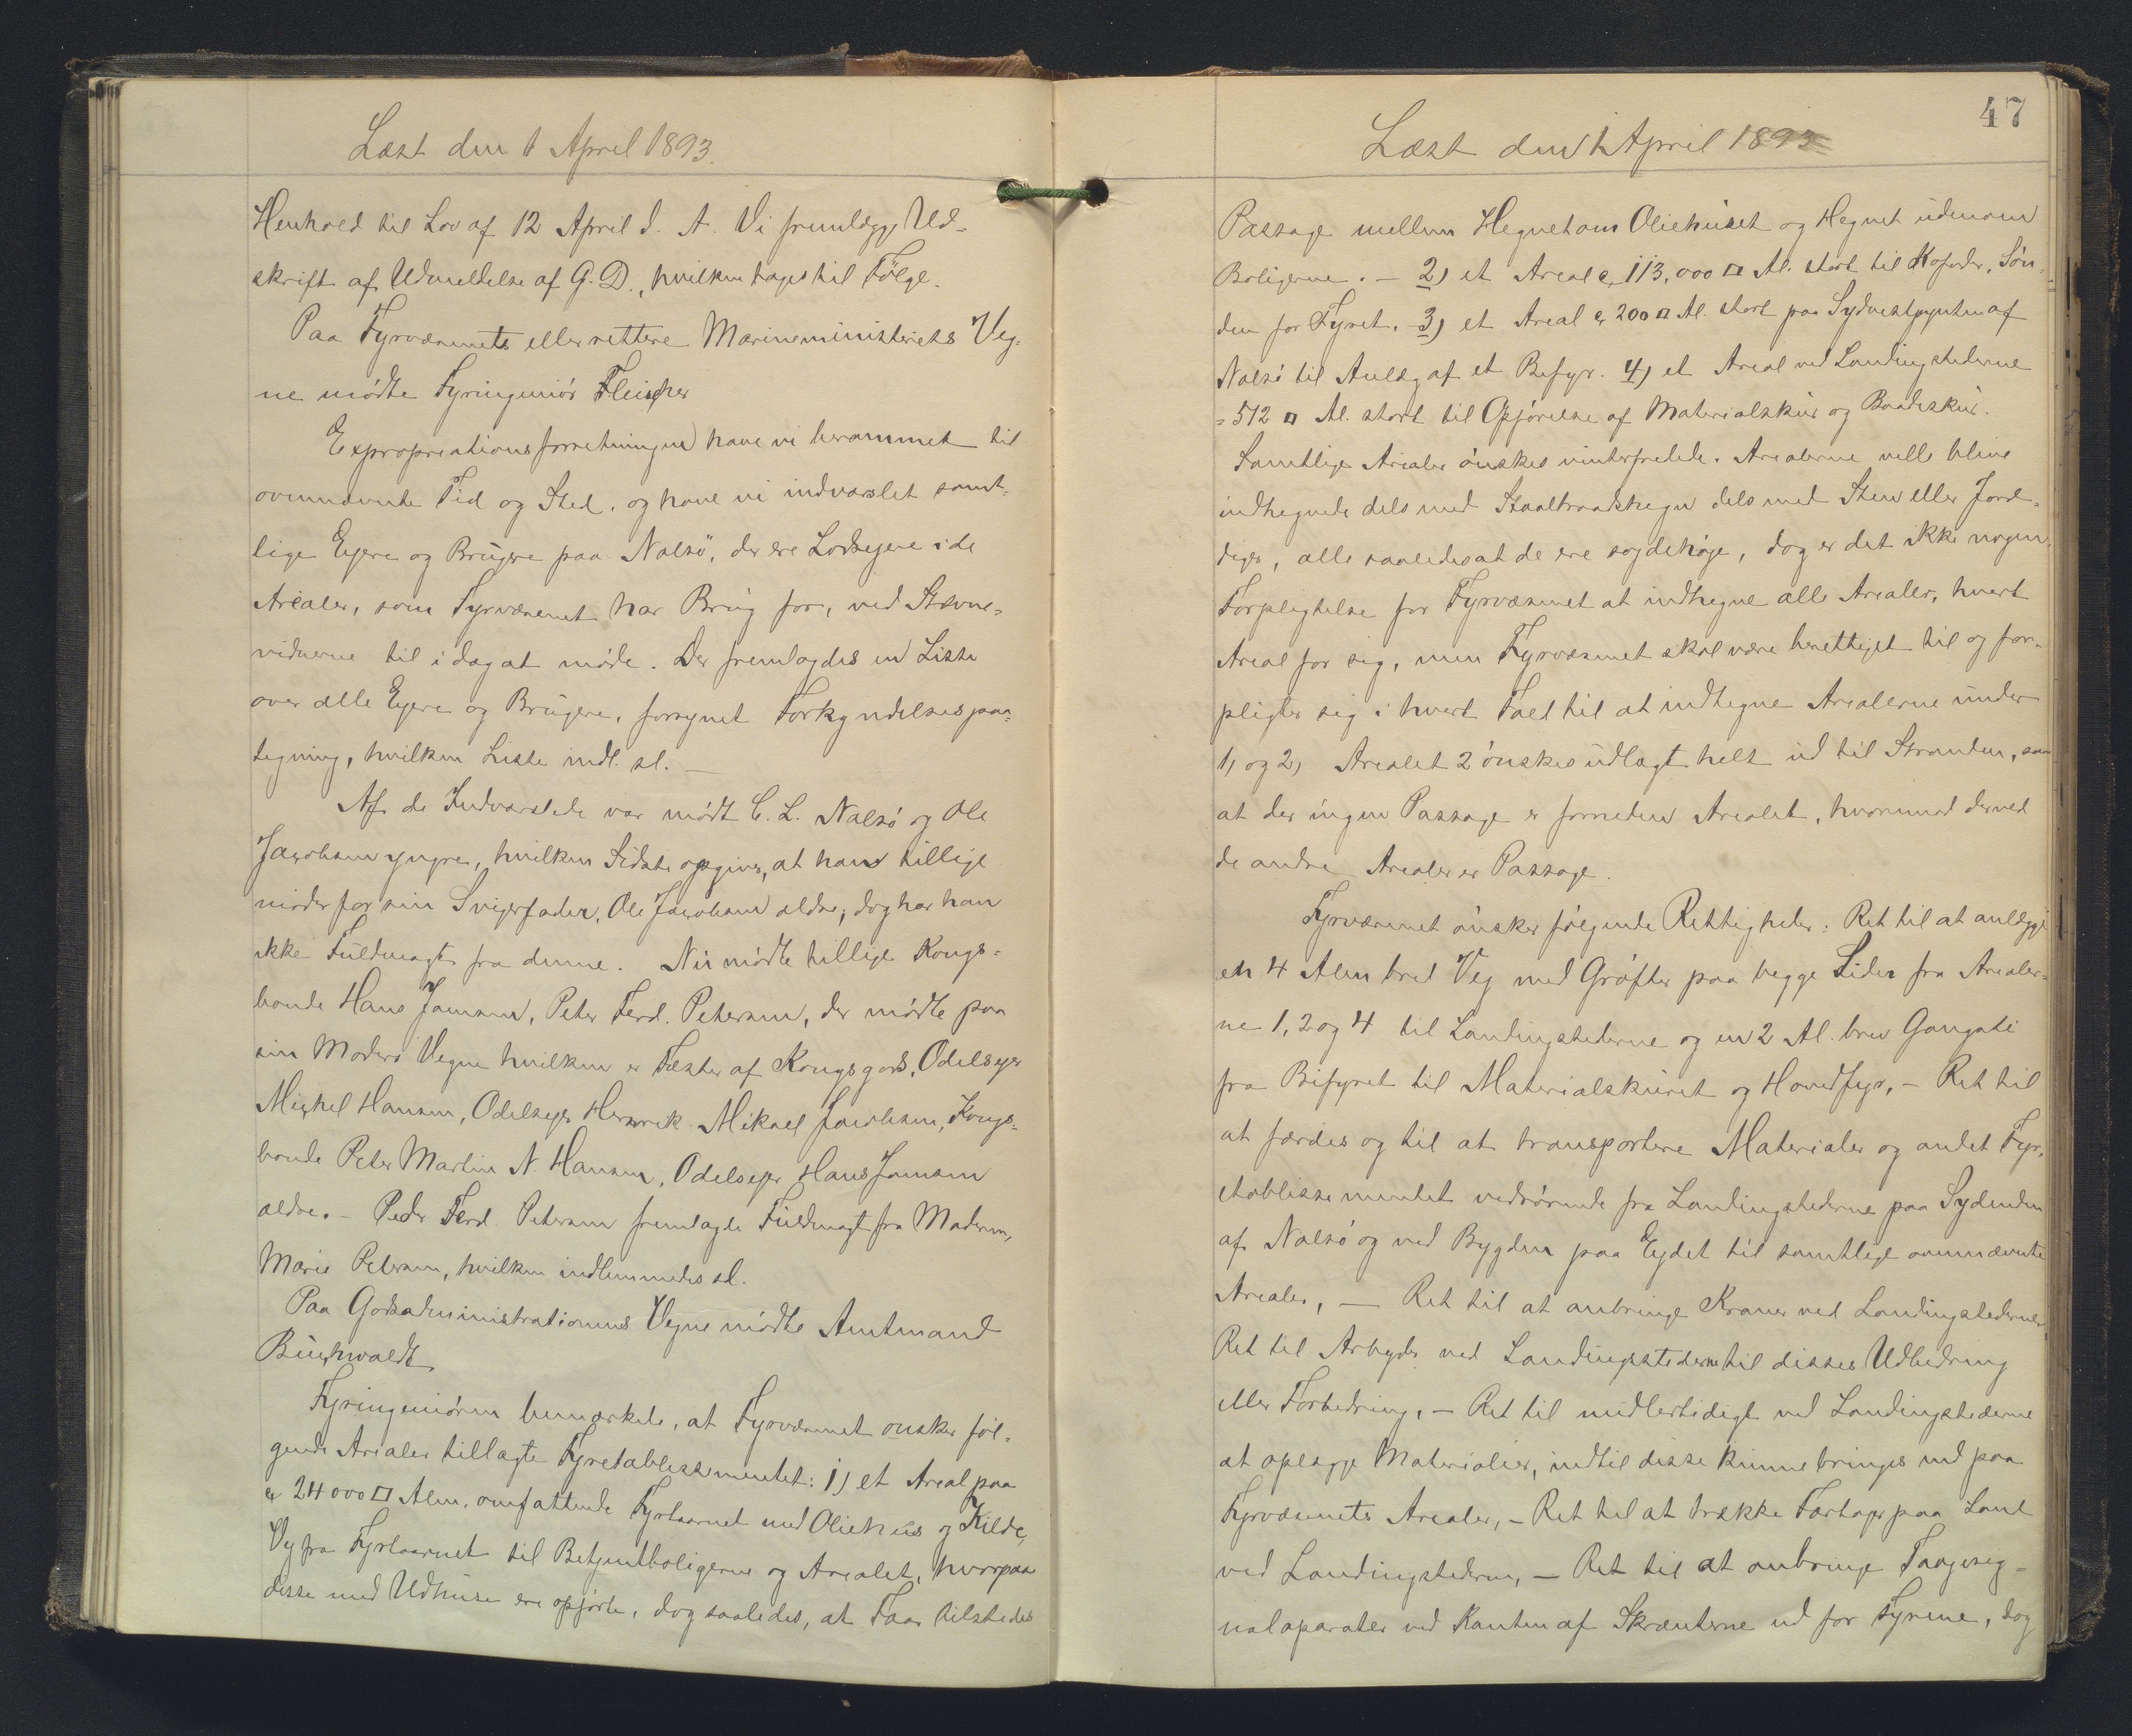 Læst den 1 April 1893.
Henhold til Lov af 12 April d. A. Vi fremlægge Ud-
skrift af Udmeldelse af G. D., hvilken tages til Følge.
Paa Fyrvæsenets eller rettere Marineministeriets Veg-
ne mødte Fyringeniør Fleischer
Expropriationsforretningen have vi berammet til
ovennævnte Tid og Sted, og have vi indvarslet samt-
lige Ejere og Brugere paa Nolsø, der ere Lodsejere i de
Arealer, som Fyrvæsenet har Brug for, ved Stævne-
vidnerne til i dag at møde. Der fremlagdes en Liste
over alle Ejere og Brugere, forsynet Forkyndelsespaa-
tegning, hvilken Liste indl. sl. —
Af de Indvarslede var mødt C. L. Nolsø og Ole
Jacobsen yngre, hvilken Sidste opgiver, at han tillige
møder for sin Svigerfader, Ole Jacobsen ældre, dog har han
ikke Fuldmagt fra denne. Nu mødte tillige Kongs-
bonde Hans Joensen, Peter Ferd. Petersen, der mødte paa
sin Moders Vegne hvilken er Fæster af Kongsgods, Odelsejer
Michel Hansen, Odelsejer Henrik Mikael Jacobsen, Kongs-
bonde Peter Martin N. Hansen, Odelsejer Hans Joensen
ældre. - Peder Ferd. Petersen fremlagde Fuldmagt fra Moderen,
Marie Petersen, hvilken indlemmedes sl.
Paa Godsadministrationens Vegne mødte Amtmand
Buchwaldt
Fyringeniøren bemærkede, at Fyrvæsenet ønsker føl-
gende Arealer tillagte Fyretablissementet: 1) et Areal paa
c. 24000 □ Alen, omfattende Fyrtaarnet med Oliehus og Kilde,
Vej fra Fyrtaarnet til Betjentboligerne og Arealet, hvorpaa
disse med Udhuse ere opførte, dog saaledes, at Faar tilstedes
47
Læst den 1 April 1893
Passage mellem Hegnet om Oliehuset og Hegnet udenom
Boligerne. — 2) et Areal c. 113,000 □ Al. stort til Kofoder, Søn-
den for Fyret. 3) et Areal c. 200 □ Al. stort paa Sydvestpynten af
Nolsø til Anlæg af et Bifyr. 4) et Areal ved Landingstederne
= 512 □ Al. stort til Opførelse af Materialskur og Baadeskur.
Samtlige Arealer ønskes vinterfredede. Arealerne ville blive
indhegnede dels med Staaltraadshegn dels med Sten eller Jord-
diger, alle saaledes at de ere sojdehøge, dog er det ikke nogen
Forpligtelse for Fyrvæsenet at indhegne alle Arealer, hvert
Areal for sig, men Fyrvæsenet skal være berettiget til og for-
pligter sig i hvert Fald til at indhegne Arealerne under
1, og 2, Arealet 2 ønskes udlagt helt ud til Stranden, saa
at der ingen Passage er forneden Arealet, hvorimod der ved
de andre Arealer er Passage.
Fyrvæsenet ønsker følgende Rettigheder: Ret til at anlægge
en 4 Alen bred Vej med Grøfter paa begge Sider fra Arealer-
ne 1, 2 og 4 til Landingstederne og en 2 Al. bred Gangsti
fra Bifyret til Materialskuret og Hovedfyr, — Ret til
at færdes og til at transportere Materialer og andet Fyr-
etablissementet vedrørende fra Landingstederne paa Sydenden
af Nolsø og ved Bygden paa Eydet til samtlige ovennævnte
Arealer, — Ret til at anbringe Kraner ved Landingstederne
Ret til Arbejder ved Landingstederne til disses Udbedring
eller Forbedring, — Ret til midlertidigt ved Landingstederne
at oplægge Materialier, indtil disse kunne bringes ind paa
Fyrvæsenets Arealer, — Ret til at trække Fartøjer paa Land
ved Landingstederne, — Ret til at anbringe Taagesig-
nalaparater ved Kanten af Skrænterne ud for Fyrene, dog